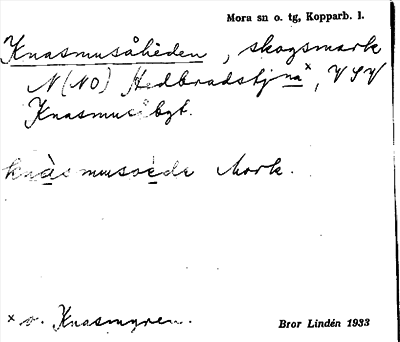 Mora sn o. tg, Kopparb. l.
Knasmusåhèden, skogsmark
N (NO) Hedbradstjna x, VSV
Knasmusåbgt.
knàsmusoède Mork.
x o. Knasmyren.
Bror Lindén 1933